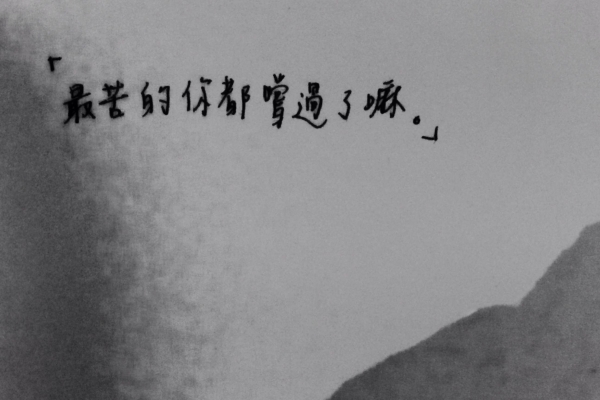 「最苦的你都嚐過了嘛。」